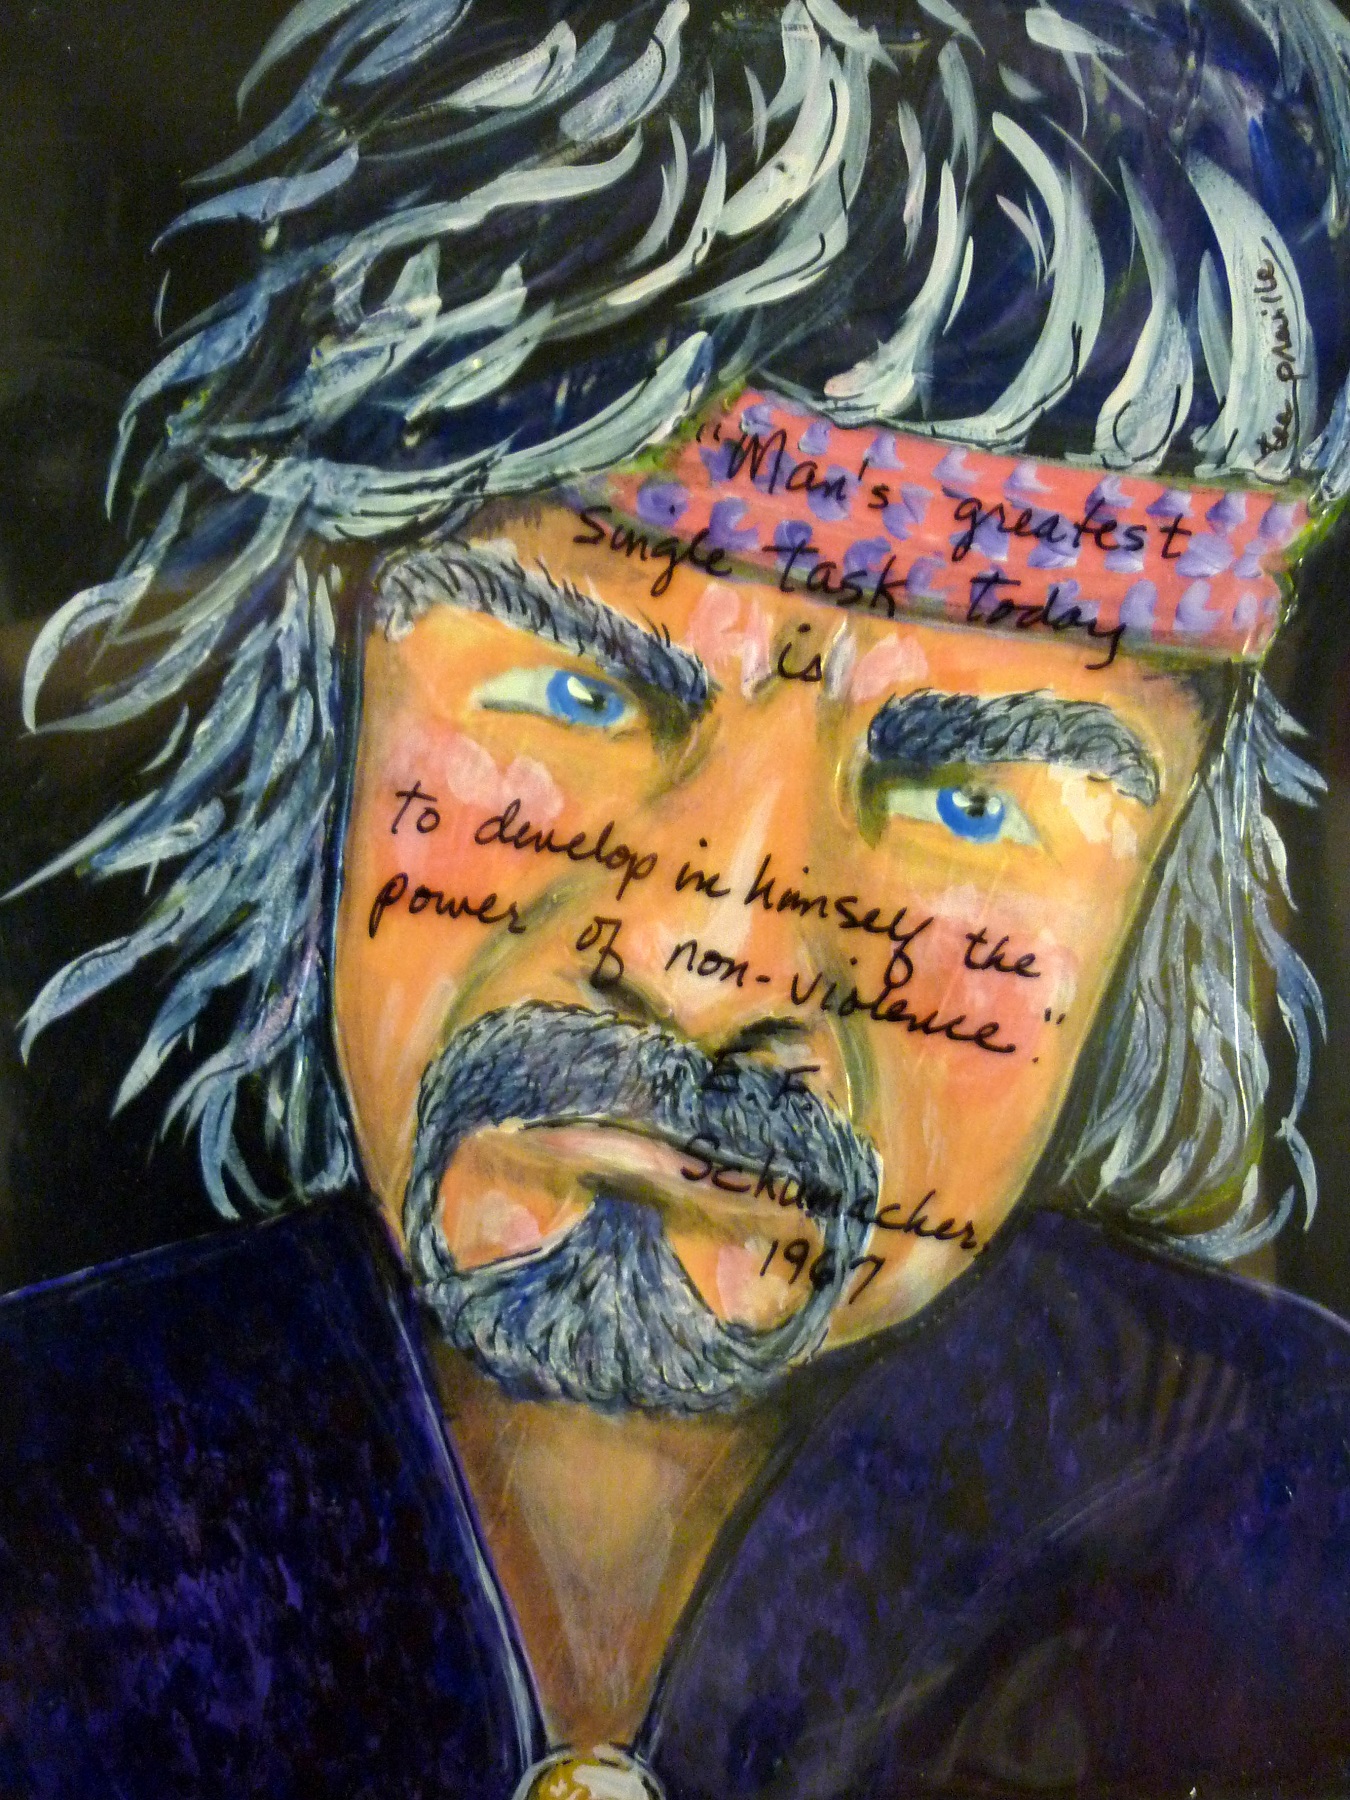 "Man's greatest
single task today
is
to develop in himself the
power of non-violence."
E.F.
Schumacher,
1967
tee prairie